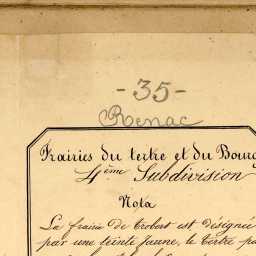 -35-
Renac
Frairies du tertre et du Bourg
4ème Subdivision
Nota
La frairie de trobert est désignée
par une teinte jaune, le tertre pa